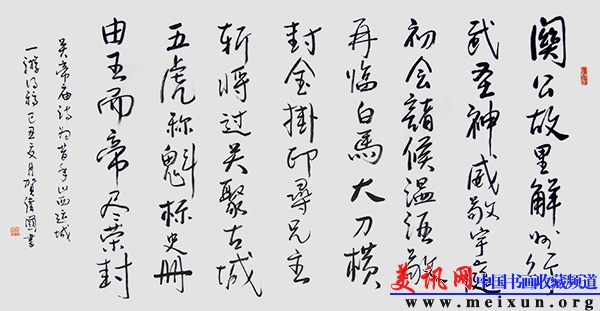 關公故里解州行
武圣神威敬宇庭
初会諸侯温酒斬
再临白馬大刀横
封金掛印尋兄主
斩将过关聚古城
五虎称魁标史册
由王而帝尽荣封
关帝庙诗为昔年山西运城
一游得稿己丑夏月贺信国书
美讯网
中国书画收藏频道
www.meixun.org